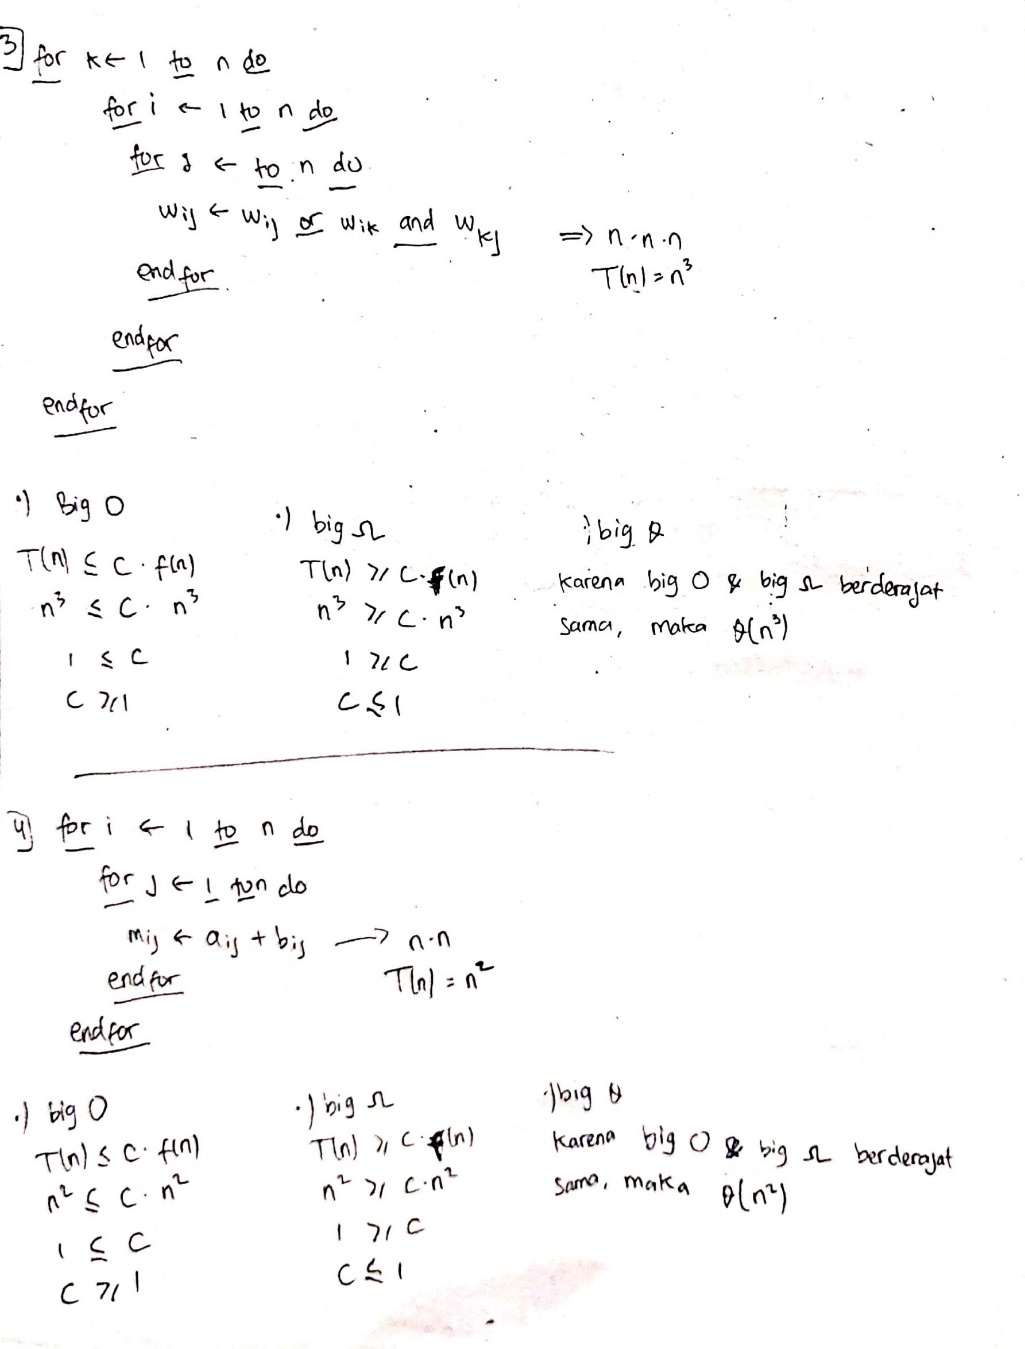 3) for k ← 1 to n do
for i ← 1 to n do
for j ← to n do
Wij ← Wij or Wik and Wkj ⇒ n.n.n
T(n) = n³
endfor
endfor
endfor
•) Big O
T(n) ≤ C . f(n)
n³ ≤ C . n³
1 ≤ C
C ≥ 1
•) big Ω
T(n) ≥ C . f(n)
n³ ≥ C . n³
1 ≥ C
C ≤ 1
•) big θ
Karena big O & big Ω berderajat
sama, maka θ(n³)
4) for i ← 1 to n do
for j ← 1 to n do
mij ← aij + bij → n.n
T(n) = n²
endfor
endfor
•) big O
T(n) ≤ C . f(n)
n² ≤ C . n²
1 ≤ C
C ≥ 1
•) big Ω
T(n) ≥ C . f(n)
n² ≥ C . n²
1 ≥ C
C ≤ 1
•) big θ
Karena big O & big Ω berderajat
sama, maka θ(n²)